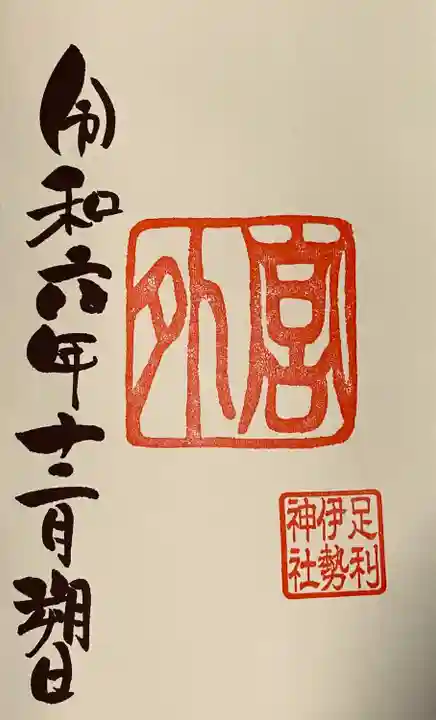 宮外
足利
伊勢
神社
令和六年十二月朔日